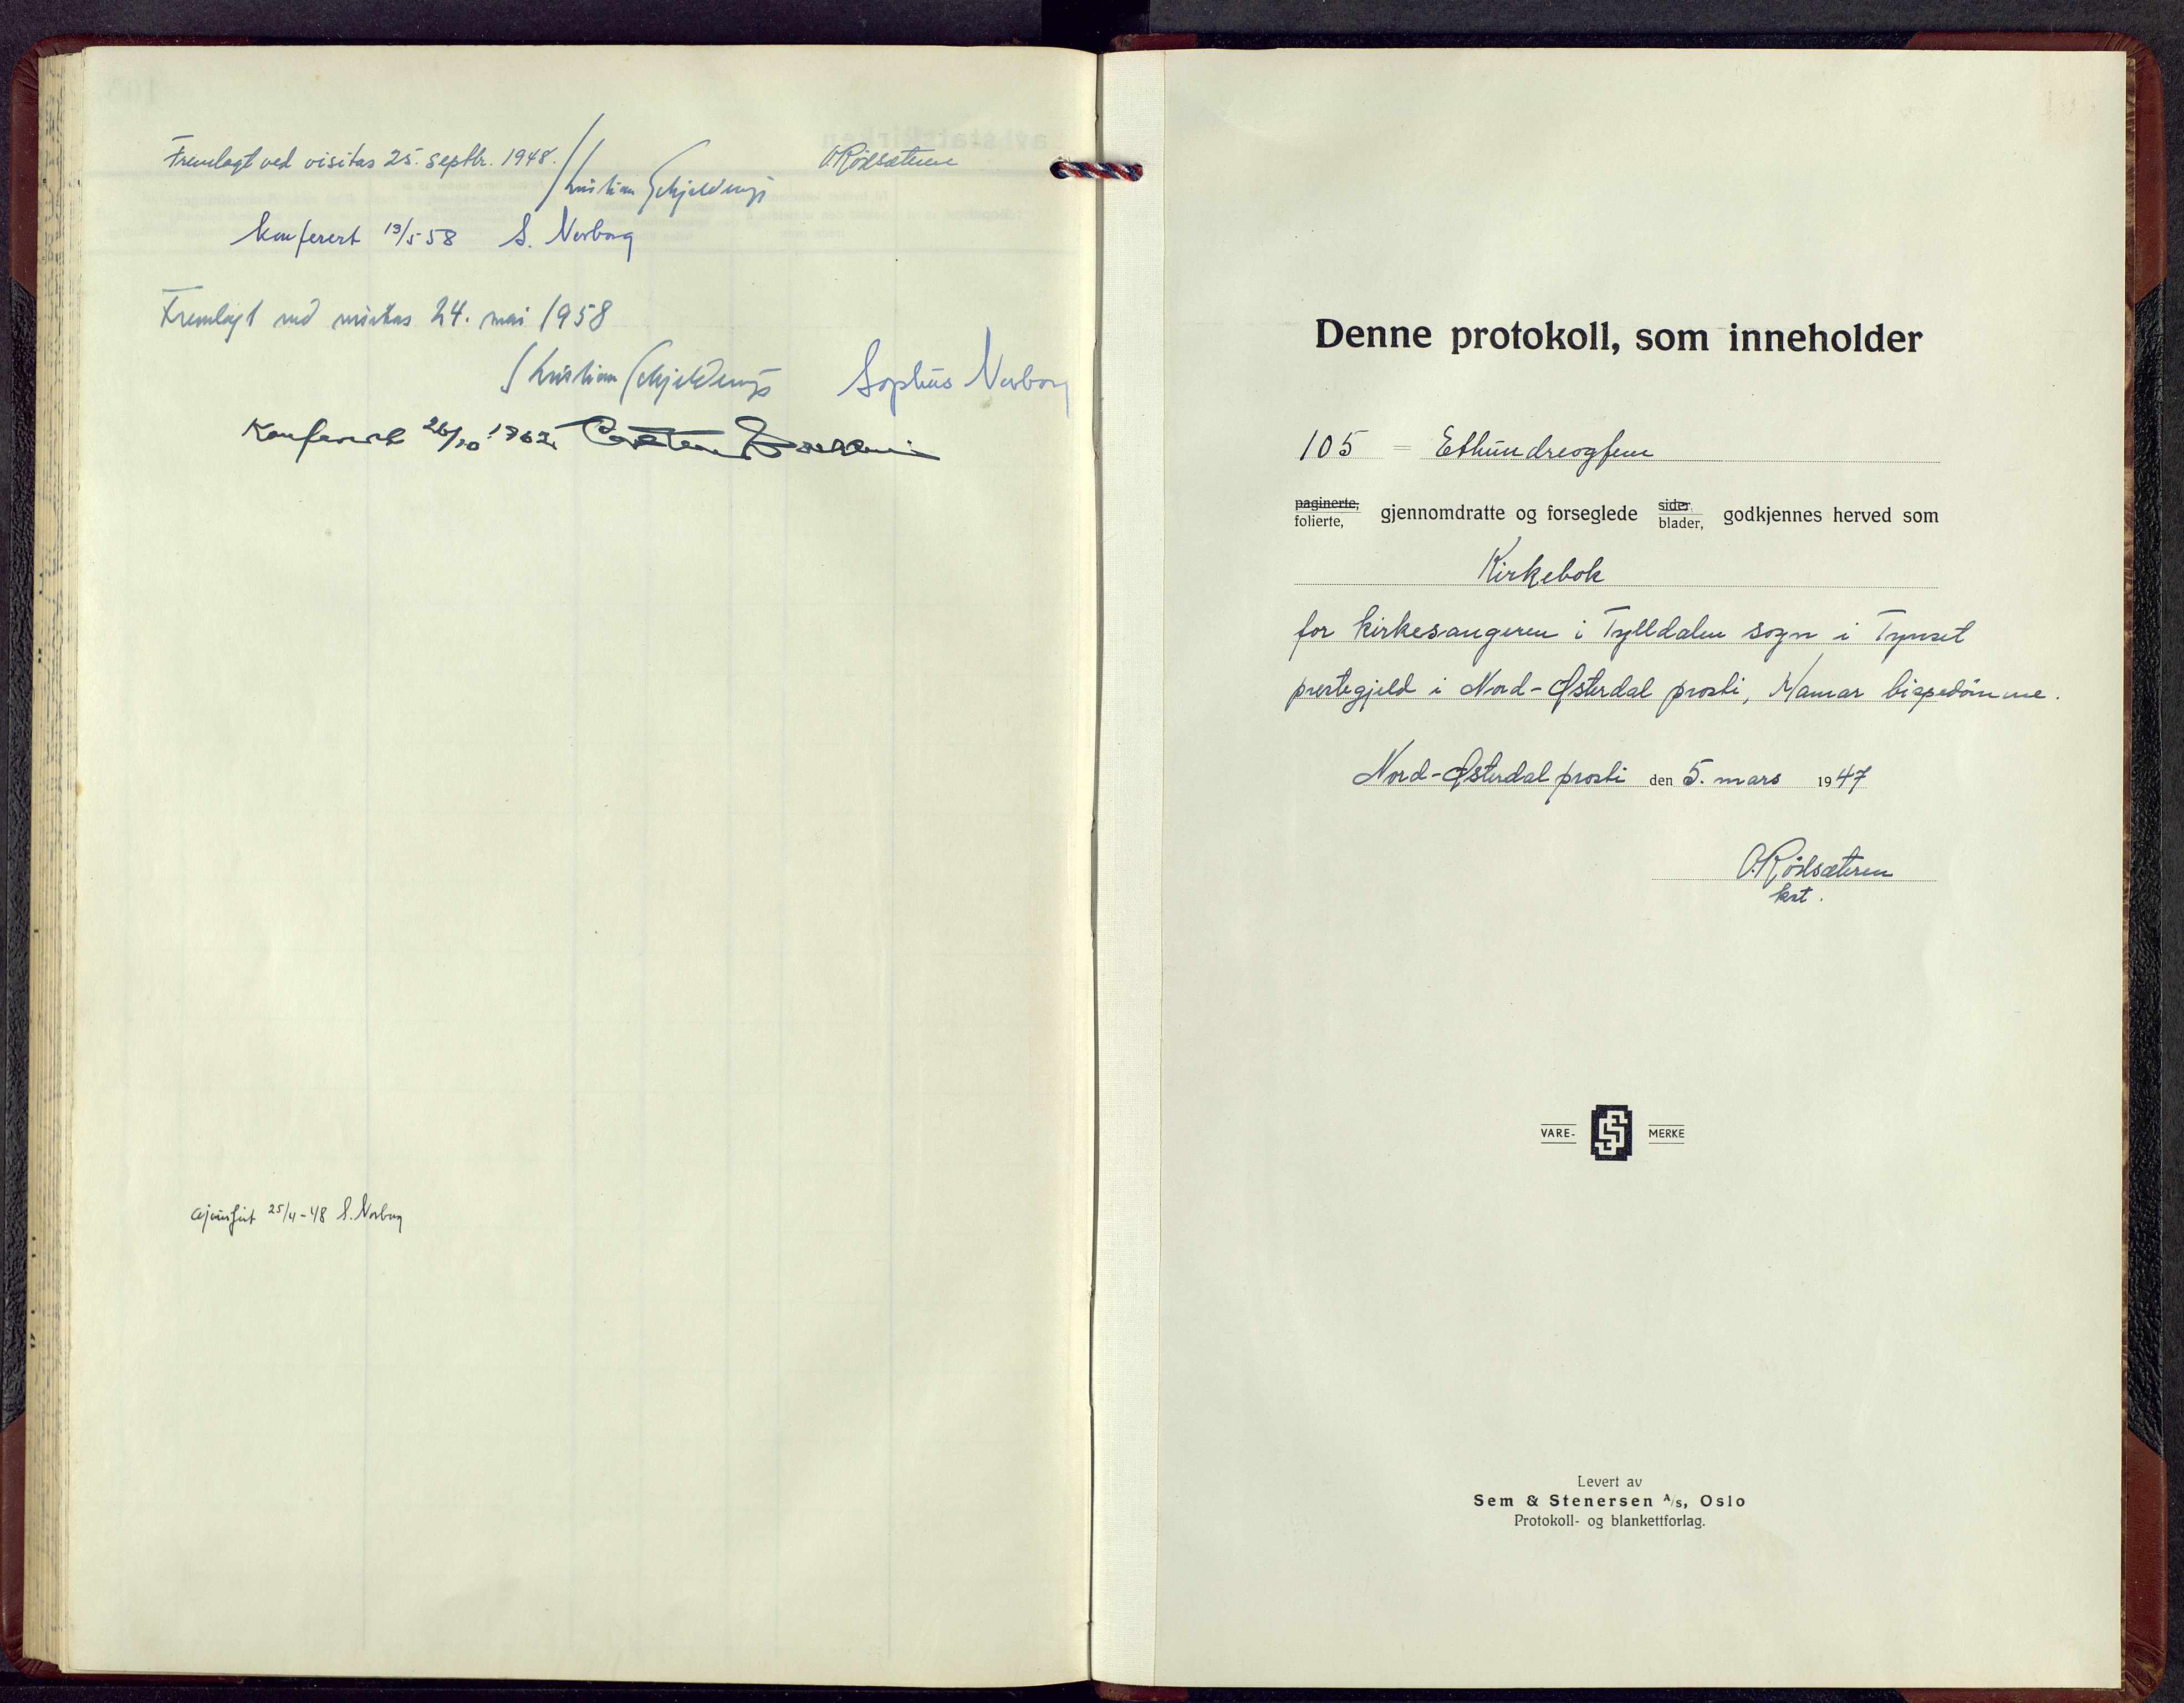 Fremlagt ved visitas 25. septbr. 1948.
Kristian Schjelderup
O. Rødsæteren
Konferert 13/5 58 S. Norborg
Fremlagt ved visitas 24. mai 1958
Kristian Schjelderup Sophus Norborg
Konferert 26/10 1962
ajourført 25/4-48 S. Norborg
Denne protokoll, som inneholder
105 = Ethundreogfem
paginerte, folierte, gjennomdratte og forseglede sider, blader, godkjennes herved som
Kirkebok
for kirkesangeren i Tylldalen sogn i Tynset
prestegjeld i Nord-Østerdal prosti, Hamar bispedømme.
Nord-Østerdal prosti den 5. mars 1947
O. Rødsæteren
kst.
VARE- SS MERKE
Levert av
Sem & Stenersen A/S, Oslo
Protokoll- og blankettforlag.